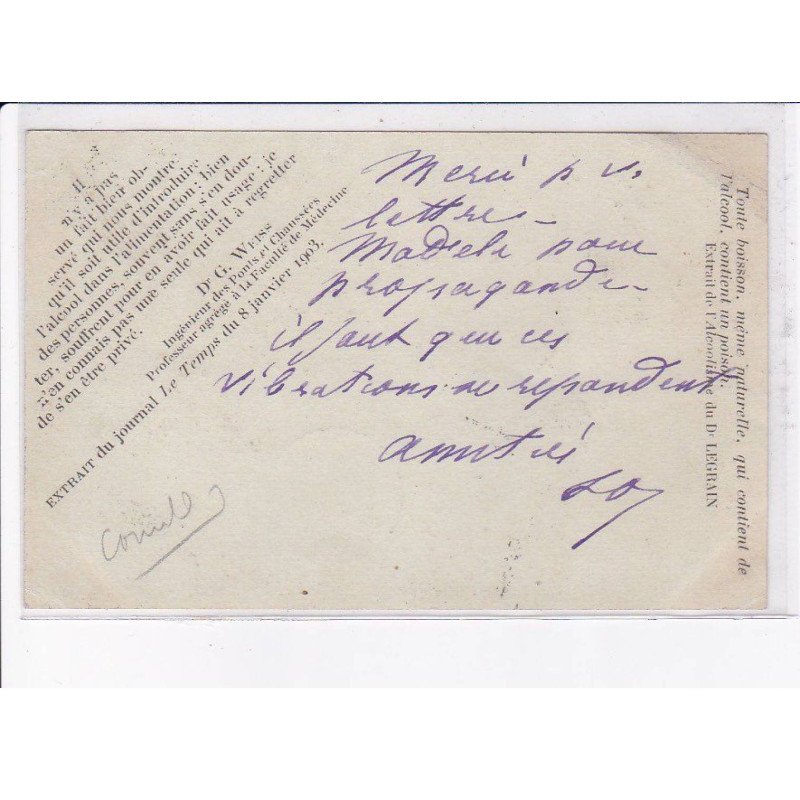 Il
n'y a pas
un fait bien ob-
servé qui nous montre
qu'il soit utile d'introduire
l'alcool dans l'alimentation ; bien
des personnes, souvent sans s'en dou-
ter, souffrent pour en avoir fait usage ; je
n'en connais pas une seule qui ait à regretter
de s'en être privé.
Dr G. WEISS
Ingénieur des Ponts et Chaussées
Professeur agrégé à la Faculté de Médecine
EXTRAIT du journal Le Temps du 8 janvier 1903.
Merci p v.
lettre
Modele pour
propagande
il faut que ces
vibrations se repandent
amitiés
Toute boisson, même naturelle, qui contient de
l'alcool, contient un poison.
Extrait de l'Alcoolisme du Dr LEGRAIN